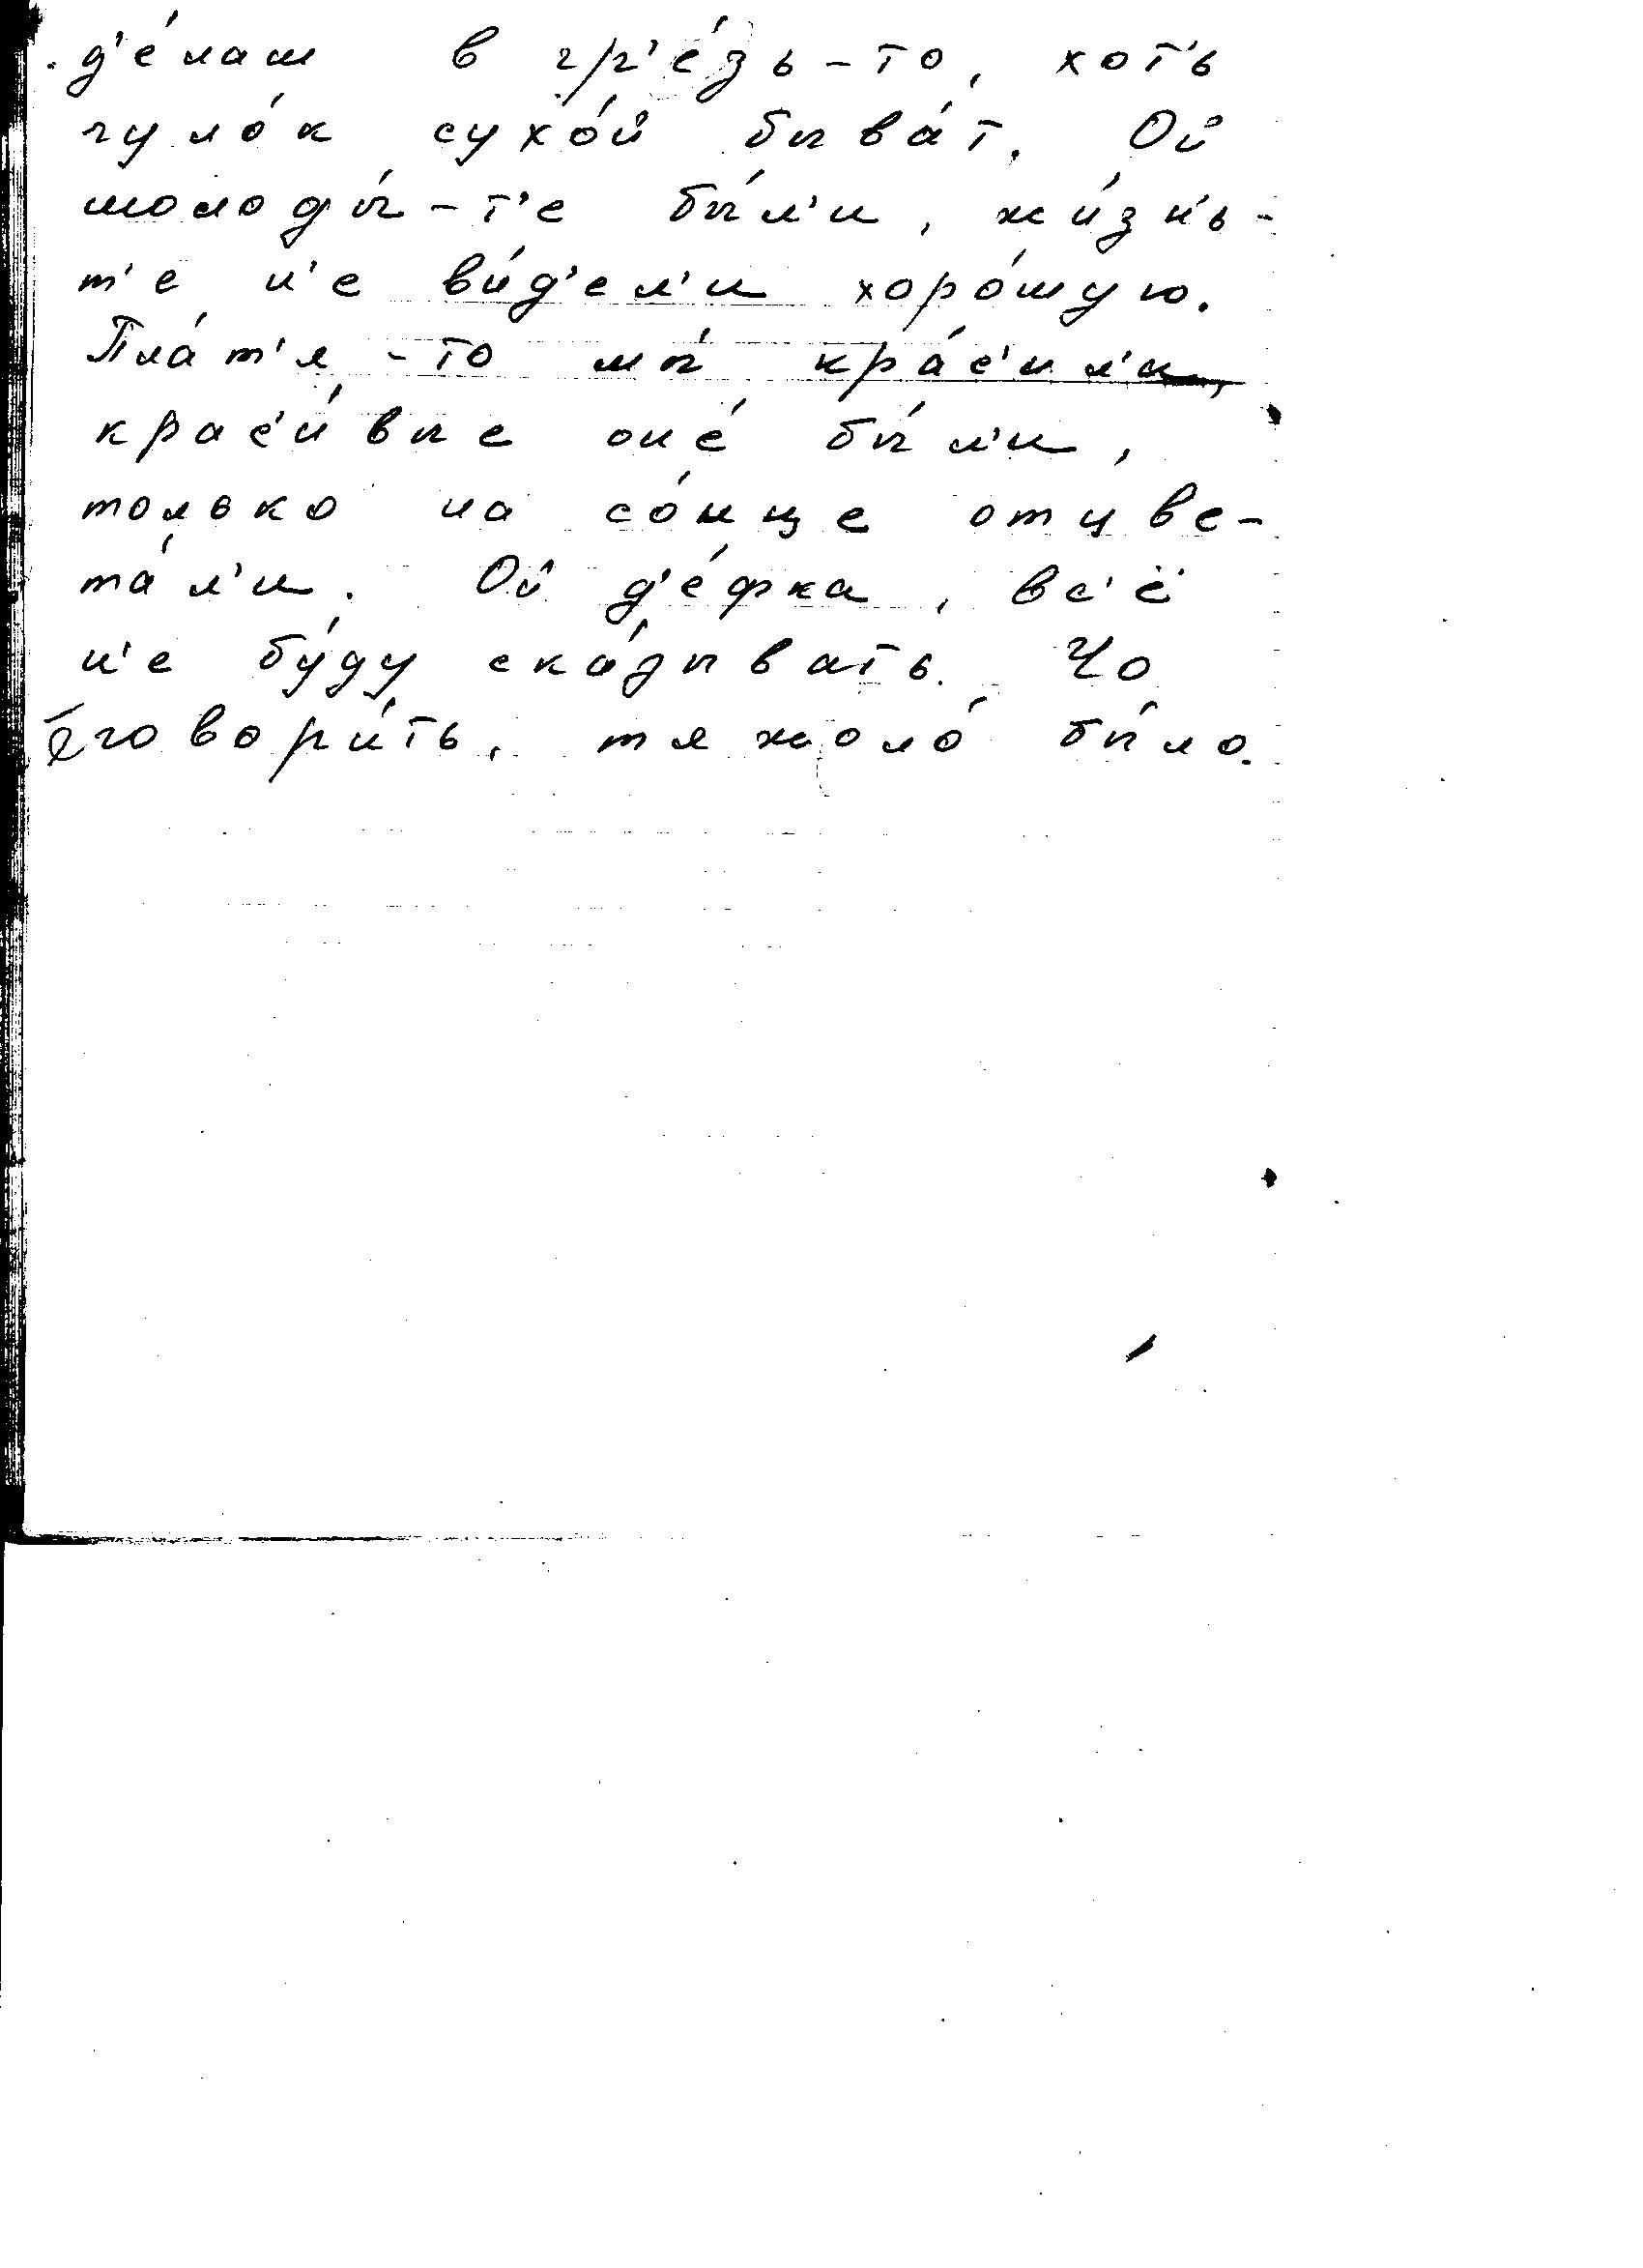 д'е́лаш в гр'е́зь-то, хоть
чуло́к сухо́й быва́т. Ой
молоды́-т'е бы́л'и, жи́зн'ь-
т'е н'е ви́д'ел'и хоро́шую.
Пла́т'я-то мы́ кра́с'ил'и,
крас'и́вые оне́ бы́л'и,
только на со́нце отцве-
та́л'и. Ой д'е́фка, вс'ё
н'е бу́ду ска́зывать. Чо
говори́ть, тяжоло́ бы́ло.